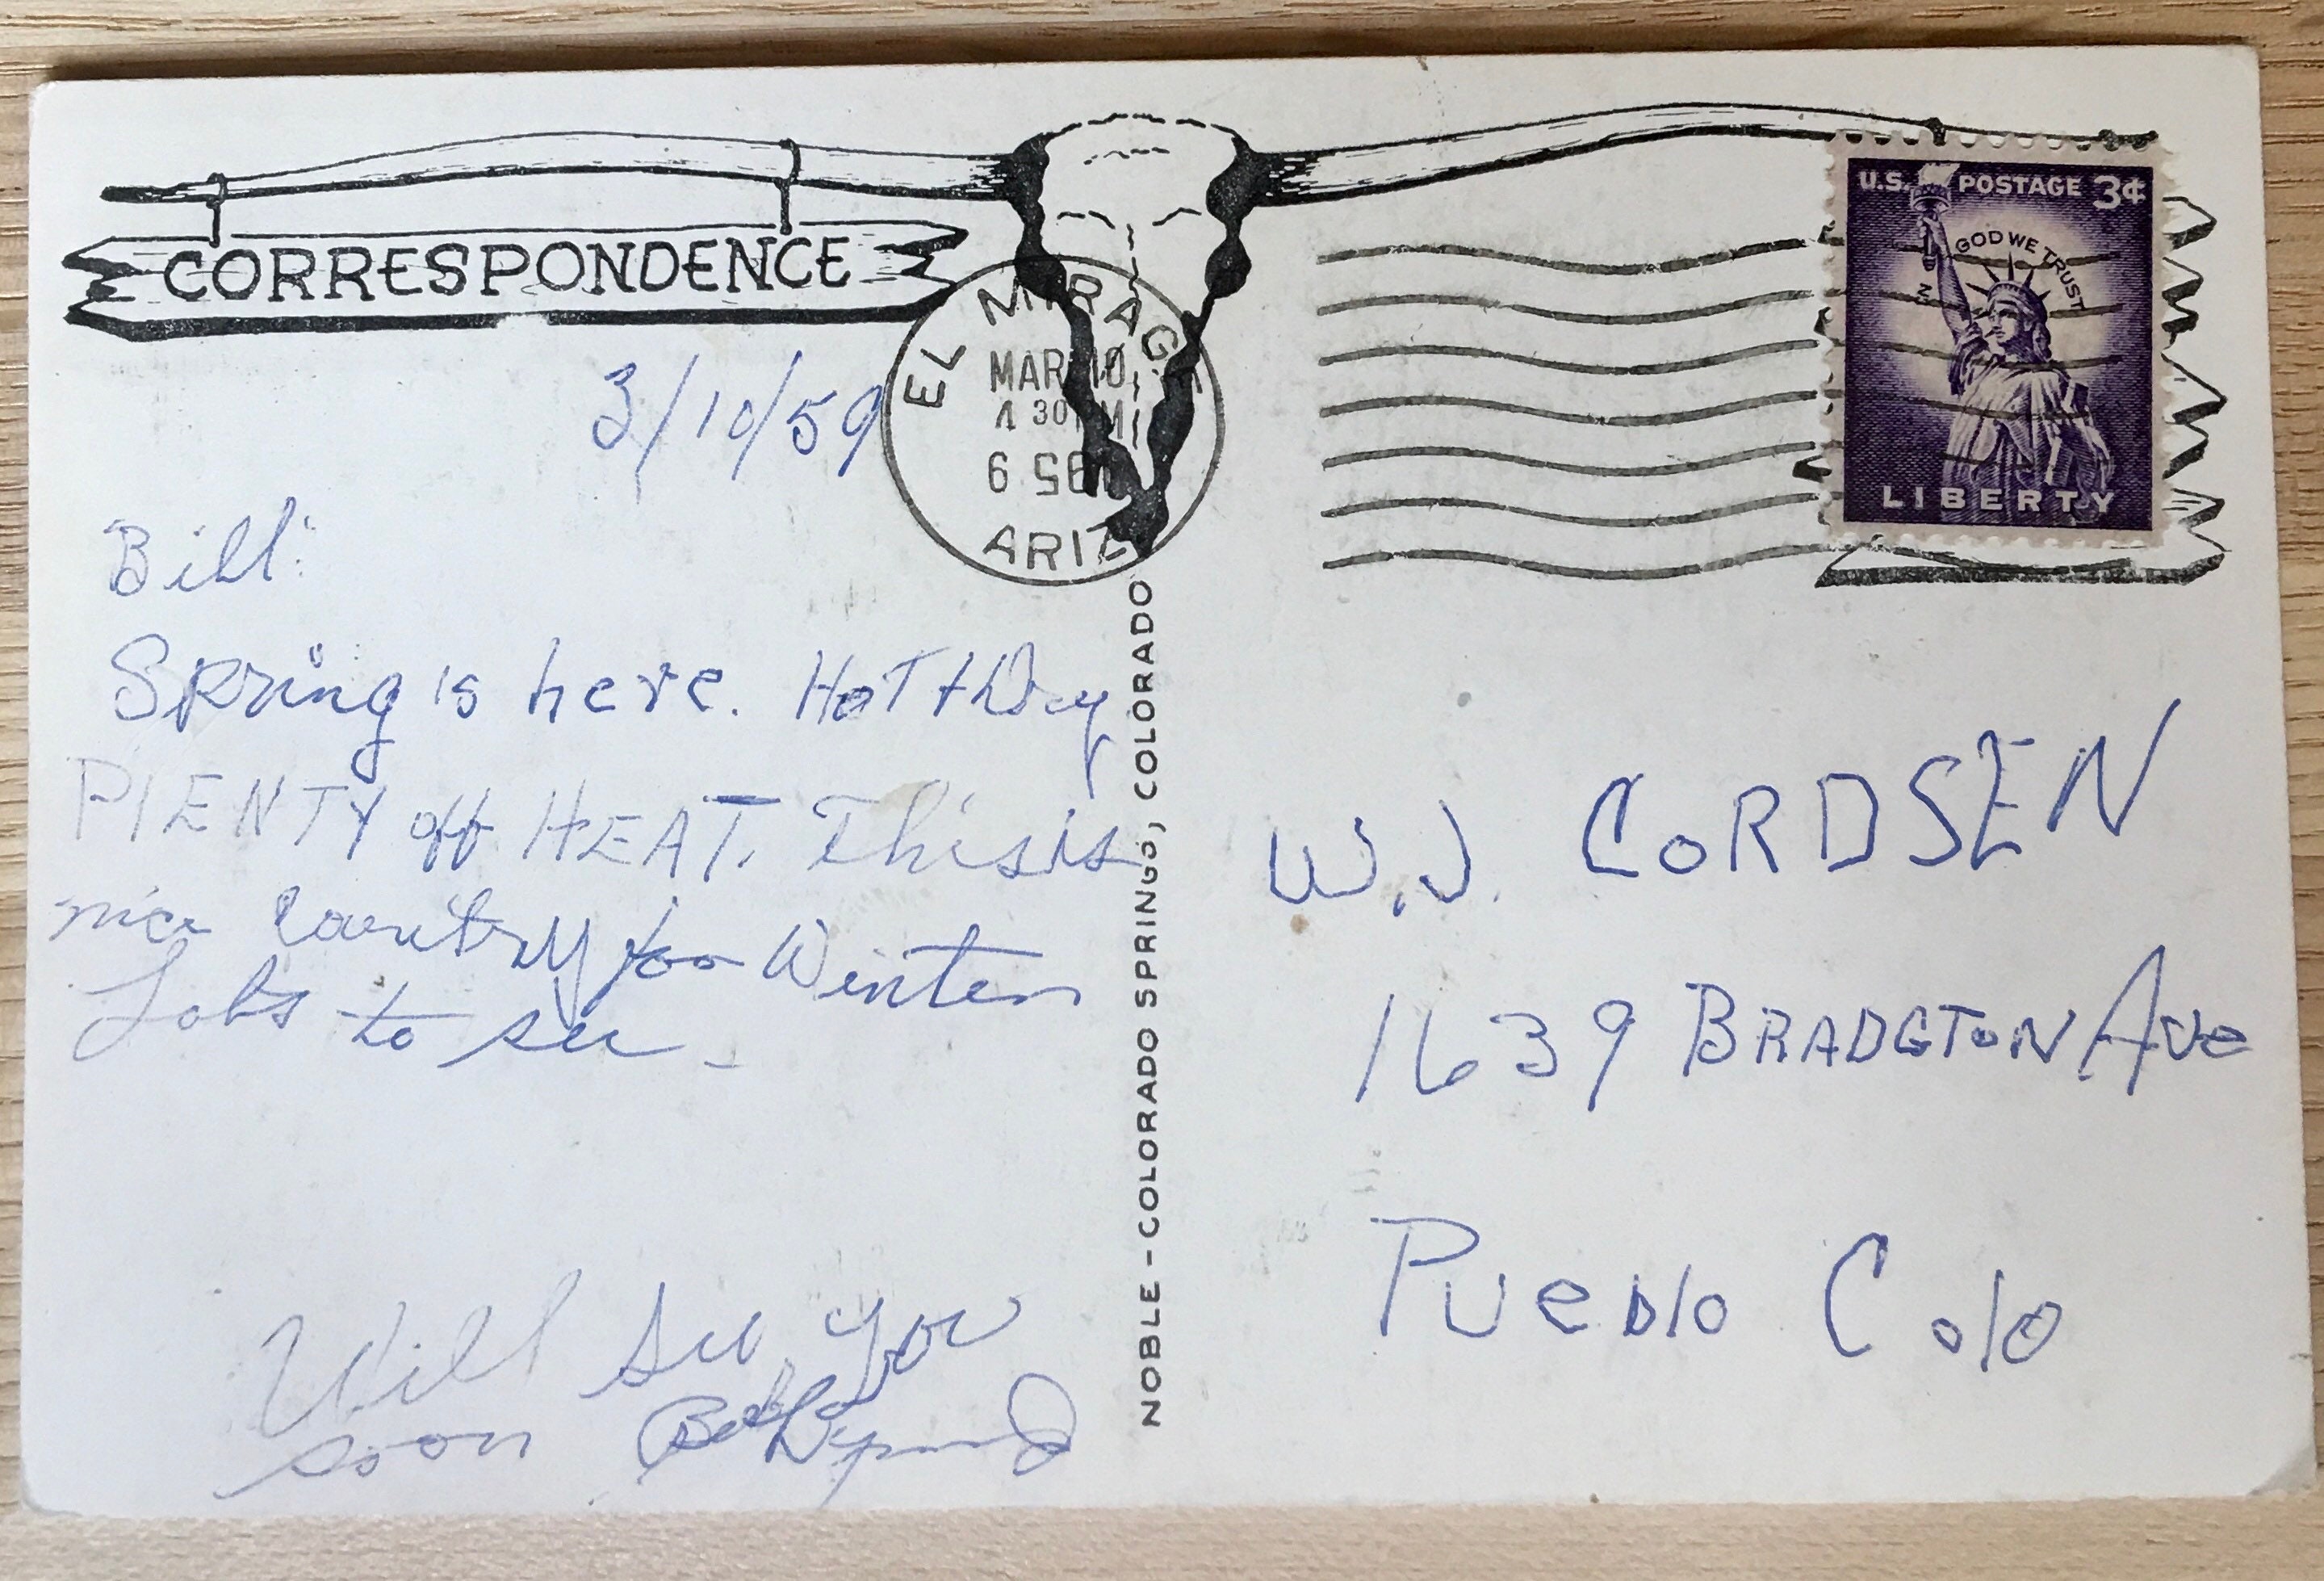 CORRESPONDENCE
EL MIRAGE
MAR 10
4 30 M
ARIZ
U.S. POSTAGE 3¢
IN GOD WE TRUST
LIBERTY
3/10/59
Bill:
Spring is here. HOT + Dry
PlENTY off HEAT. This is
nice Country for Winter
Lots to see.
Will see you
soon
NOBLE – COLORADO SPRINGS, COLORADO
W.J. CORDSEN
1639 BRADGTON Ave
Pueblo Colo